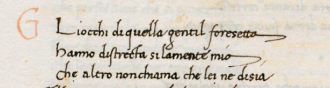 G Li occhi di quella gentil foresetta
hanno distrecta si la mente mio
che altro non chiama che lei ne disia